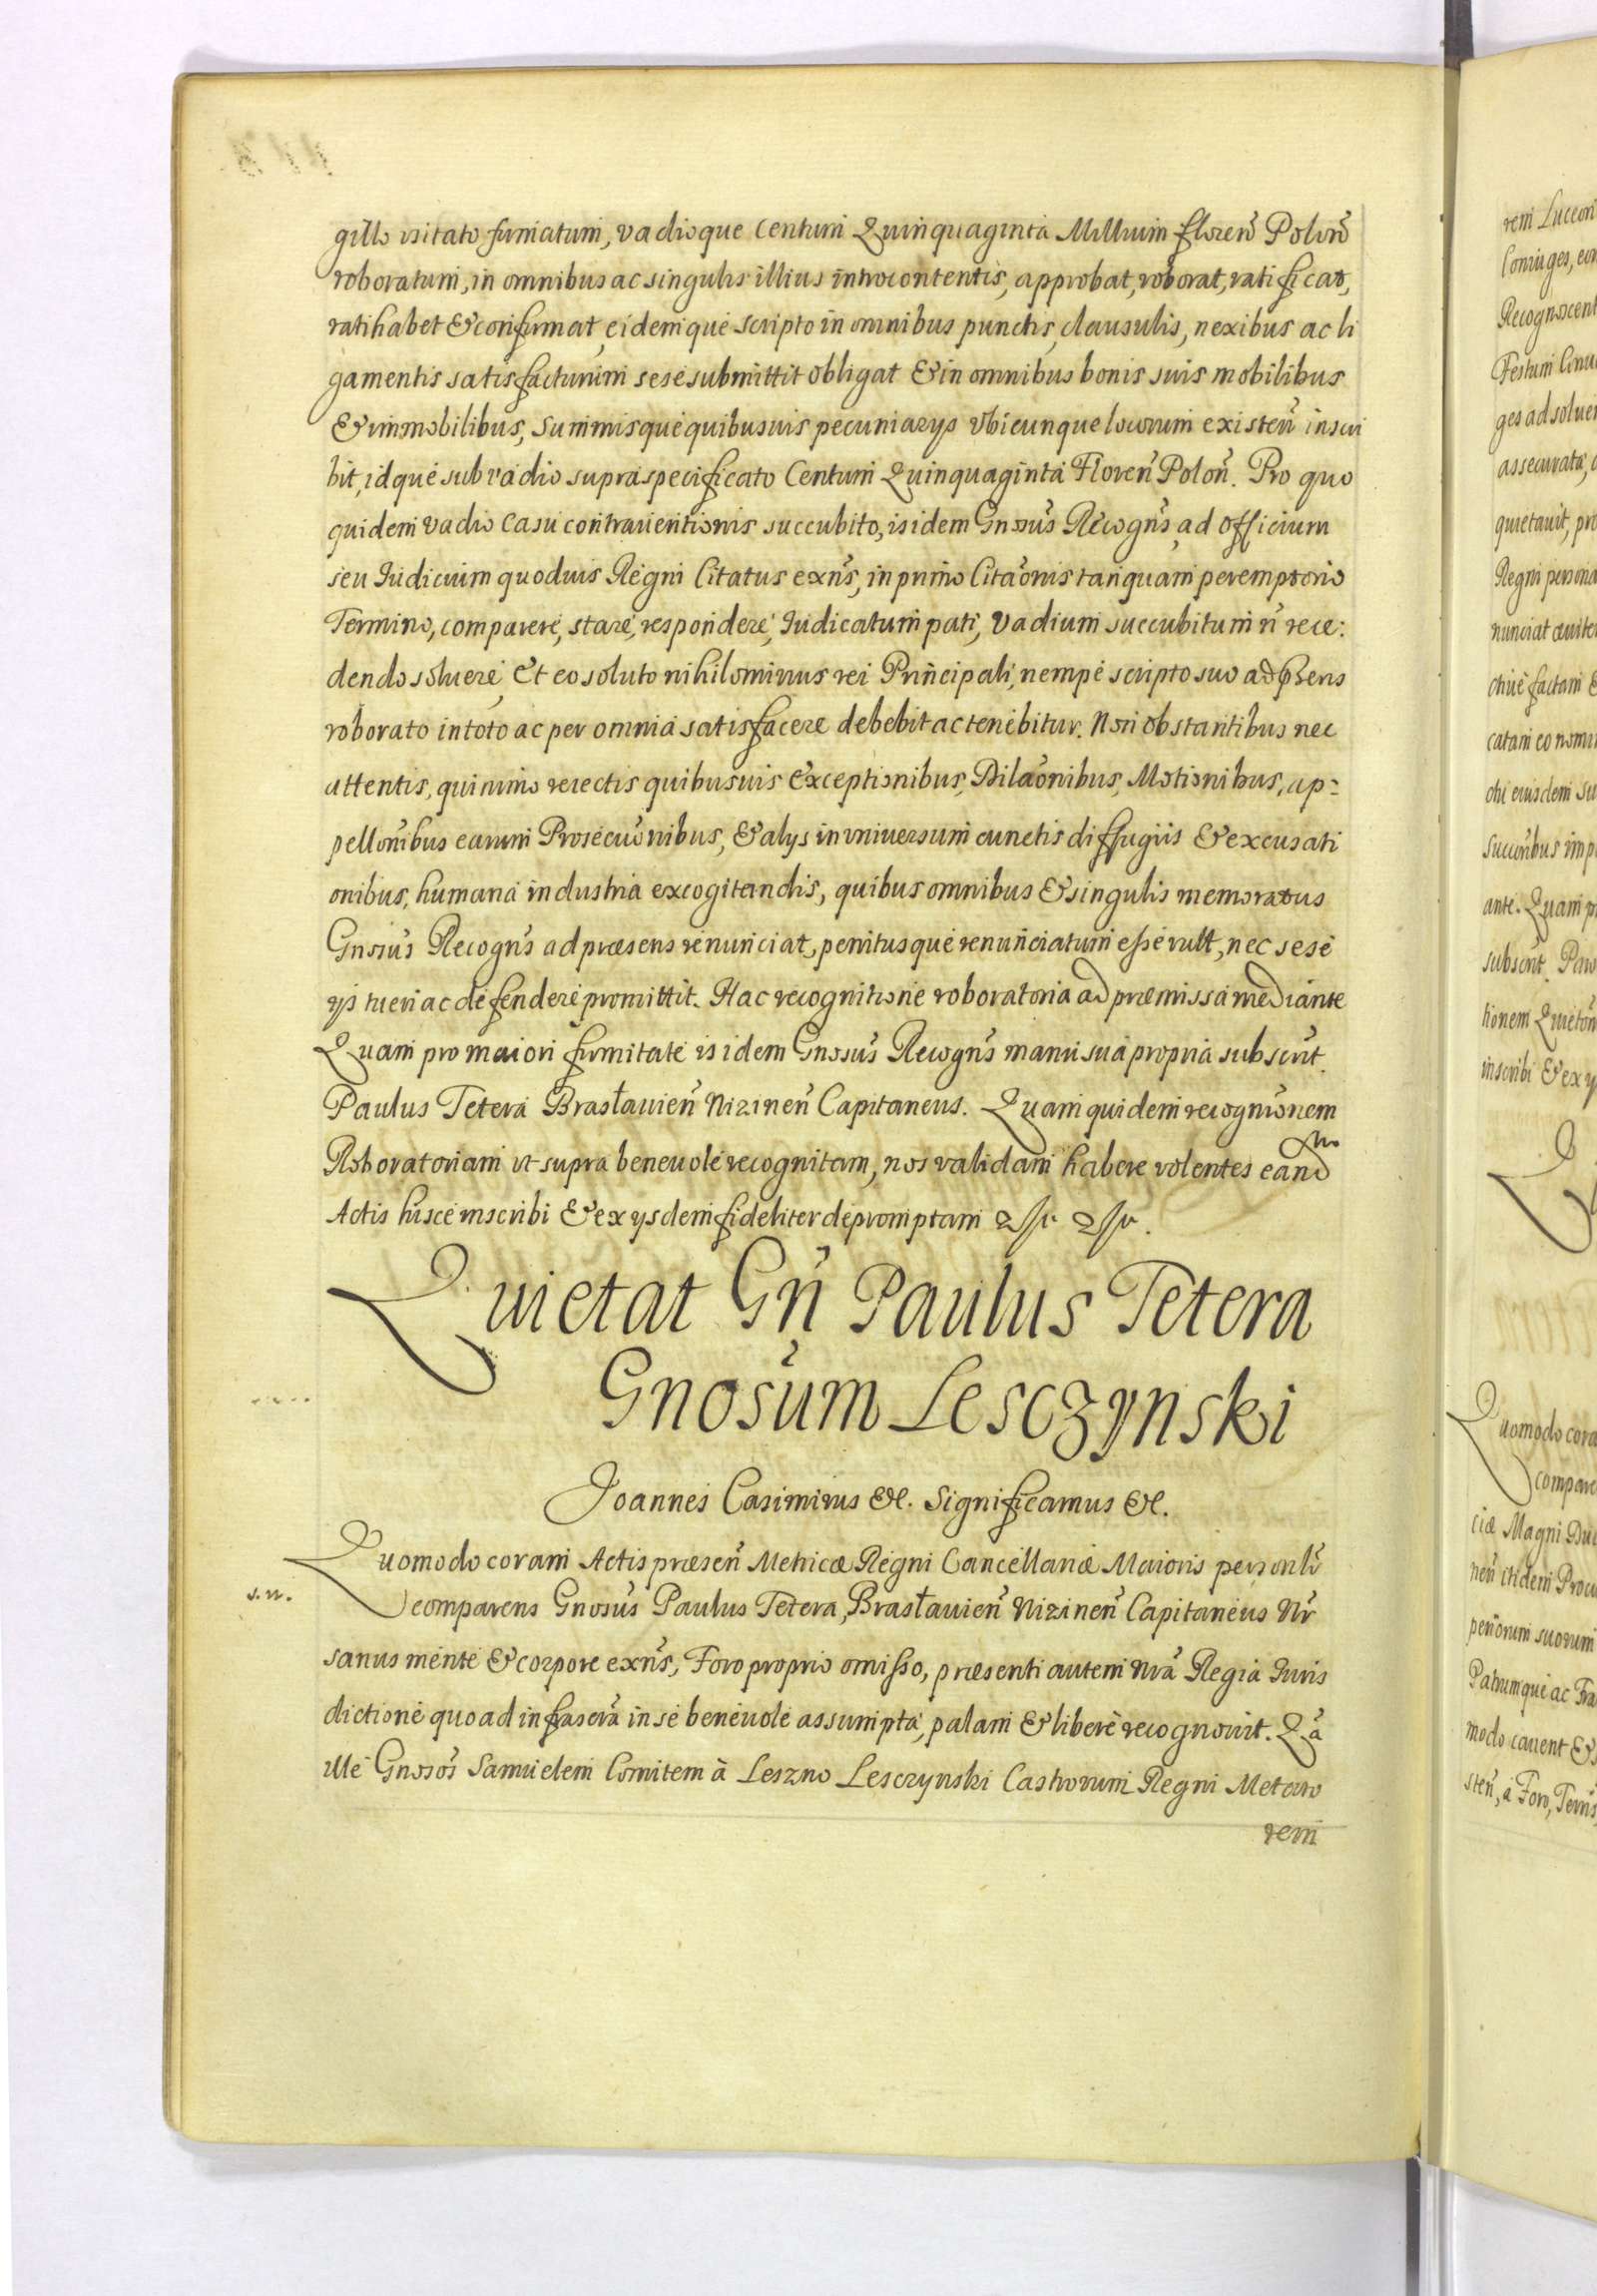 gillo usitato firmatum, vadioque Centum Quinquaginta Millium Floreñ Poloñ
roboratum, in omnibus ac singulis illius introcontentis, approbat, roborat, ratificat,
ratihabet & confirmat, eidemque scripto in omnibus punctis, clausulis, nexibus ac li
gamentis satisfacturum sese submittit obligat & in omnibus bonis suis mobilibus
& immobilibus, summisque quibusuis pecuniarys vbicunque locorum existeñ inscri
bit, idque sub vadio supraspecificato Centum Quinquaginta Floreñ Poloñ. Pro quo
quidem vadio casu contrauentionis succubito, is idem Gnosus Recogns, ad officium
seu Iudicium quoduis Regni Citatus exns, in primo Citaonis tanquam peremptorio
Termino, comparere, stare, respondere, Iudicatum pati, vadium succubitum ñ rece:
dendo soluere, Et eo soluto nihilominus rei Principali, nempe scripto suo ad phens
roborato in toto ac per omnia satisfacere debebit ac tenebitur. Non obstantibus nec
attentis, quinimo reiectis quibusuis Exceptionibus, Dilaonibus, Motionibus, ap:
pellonibus earum Prosecuonibus, & alys in vniuersum cunctis diffugiis & excusati
onibus, humana industria excogitandis, quibus omnibus & singulis memoratus
Gnosus Recogns ad præsens renunciat, penitusque renunciatum esse vult, nec sese
ijs tueri ac defendere promittit. Hac recognitione roboratoria ad præmissa mediante
Quam pro maiori firmitate is idem Gnosus Recogns manu sua propria subscrit.
Paulus Tetera Brasłauieñ Nizineñ Capitaneus. Quam quidem recognionem
Roboratoriam vt supra beneuole recognitam, nos validam habere volentes eand
Actis hisce inscribi & ex ysdem fideliter depromptam
Quietat Gñ Paulus Tetera
Gnosum Lesczynski
Joannes Casimirus &c. Significamus &c.
Quomodo coram Actis præseñ Metricæ Regni Cancellariæ Maioris personlr
s. n.
comparens Gnosus Paulus Tetera, Brasłauieñ Nizineñ Capitaneus Nr
sanus mente & corpore exns, Foro proprio omisso, præsenti autem nra Regia Iuris
dictione quoad infrascra in se beneuole assumpta, palam & libere recognouit. Qa
ille Gnosos Samuelem Comitem à Leszno Lesczynski Castrorum Regni Metato
rem